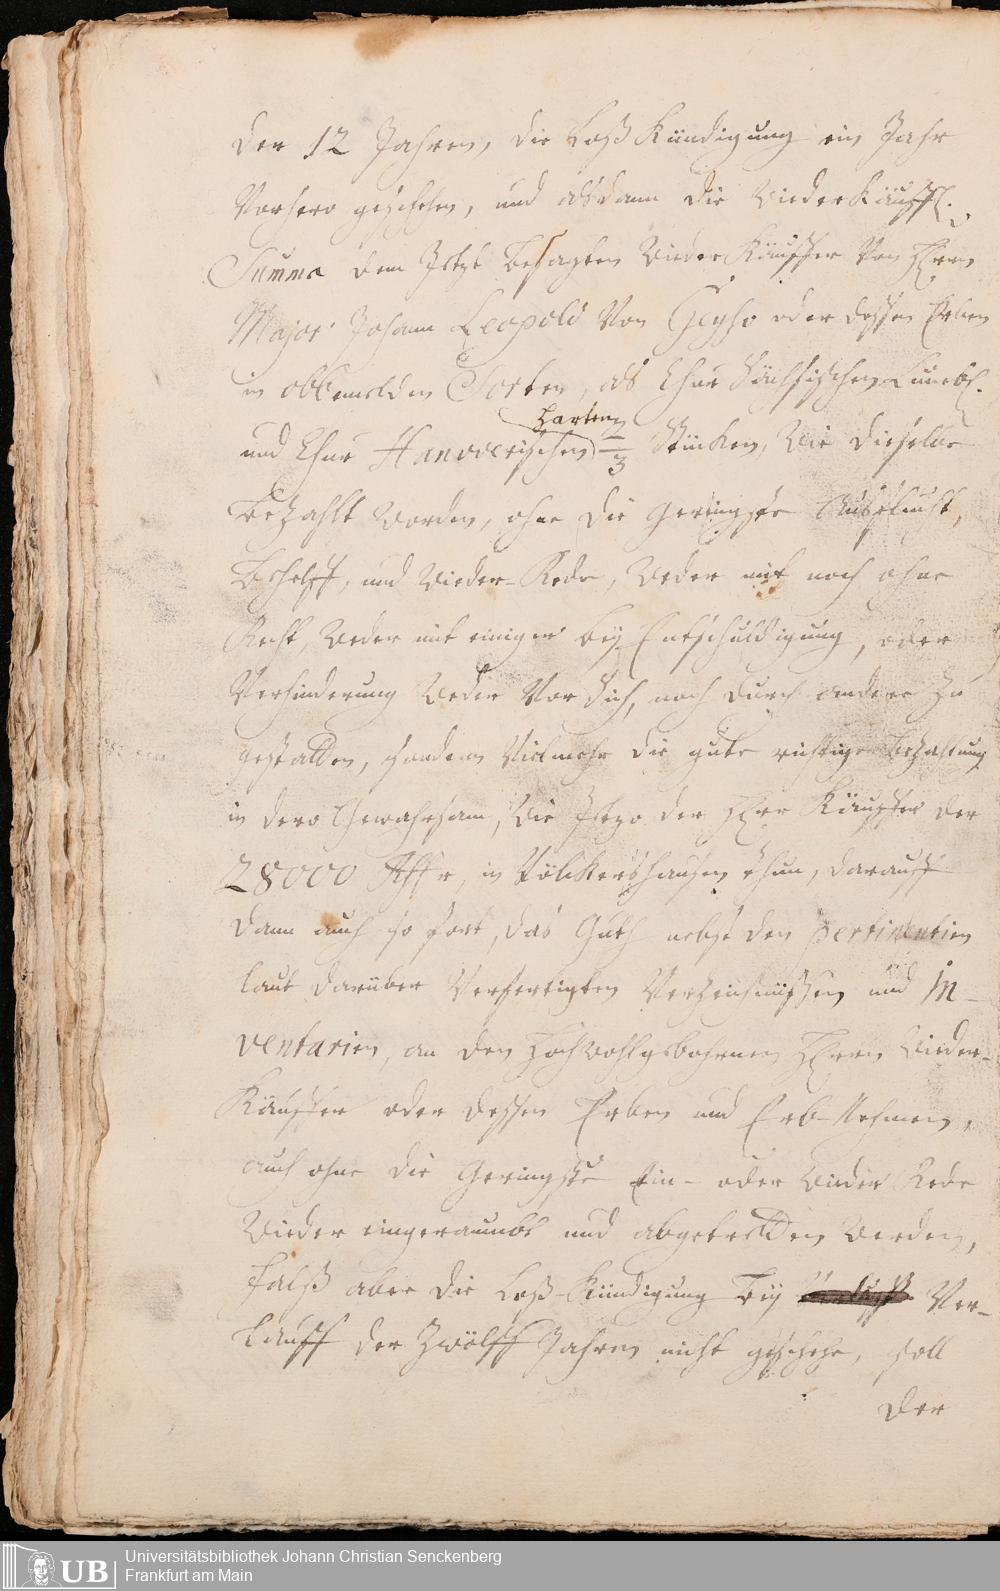 der 12 Jahren, die Loß Kündigung ein Jahr
Vorhero geschehen, und alsdann die WiederKäuffl.
Summa dem Jetzt besagten WiederKäuffer Von Herrn
Major Johann Leopold Von Geyso oder dessen Erben
in obbemelden Sorten, als Chur Sächsischen Lüneb.
und Chur Hanoverischen harten 2/3 Stücken, wie dieselbe
bezahlt worden, ohne die geringste Ausflucht,
Behelff, und Wieder-Rede, weder mit noch ohne
Recht, weder mit einiger bey Entschuldigung, oder
Verhinderung weder Vor Sich, noch durch andere zu
gestatten, sondern Vielmehr die gute richtige bezahlung
in dero Gewahrsam, wie Jetzo der Herr Käuffer der
28000 in Völckershausen thun, darauff
dann auch so fort, das Guth nebst den pertinentien
laut darüber Verfertigten Verzeichnüssen und In-
ventarien, an den Hochwohlgebohrnen Herrn Wieder-
Käuffer oder dessen Erben und Erb-Nehmen,
auch ohne die Geringste Ein- oder Wieder Rede
Wieder eingeraumbt und abgetretten werden,
falß aber die Loß-Kündigung bey Ver-
lauff der Zwölff Jahren nicht geschehe, soll
der
Universitätsbibliothek Johann Christian Senckenberg
Frankfurt am Main
UB